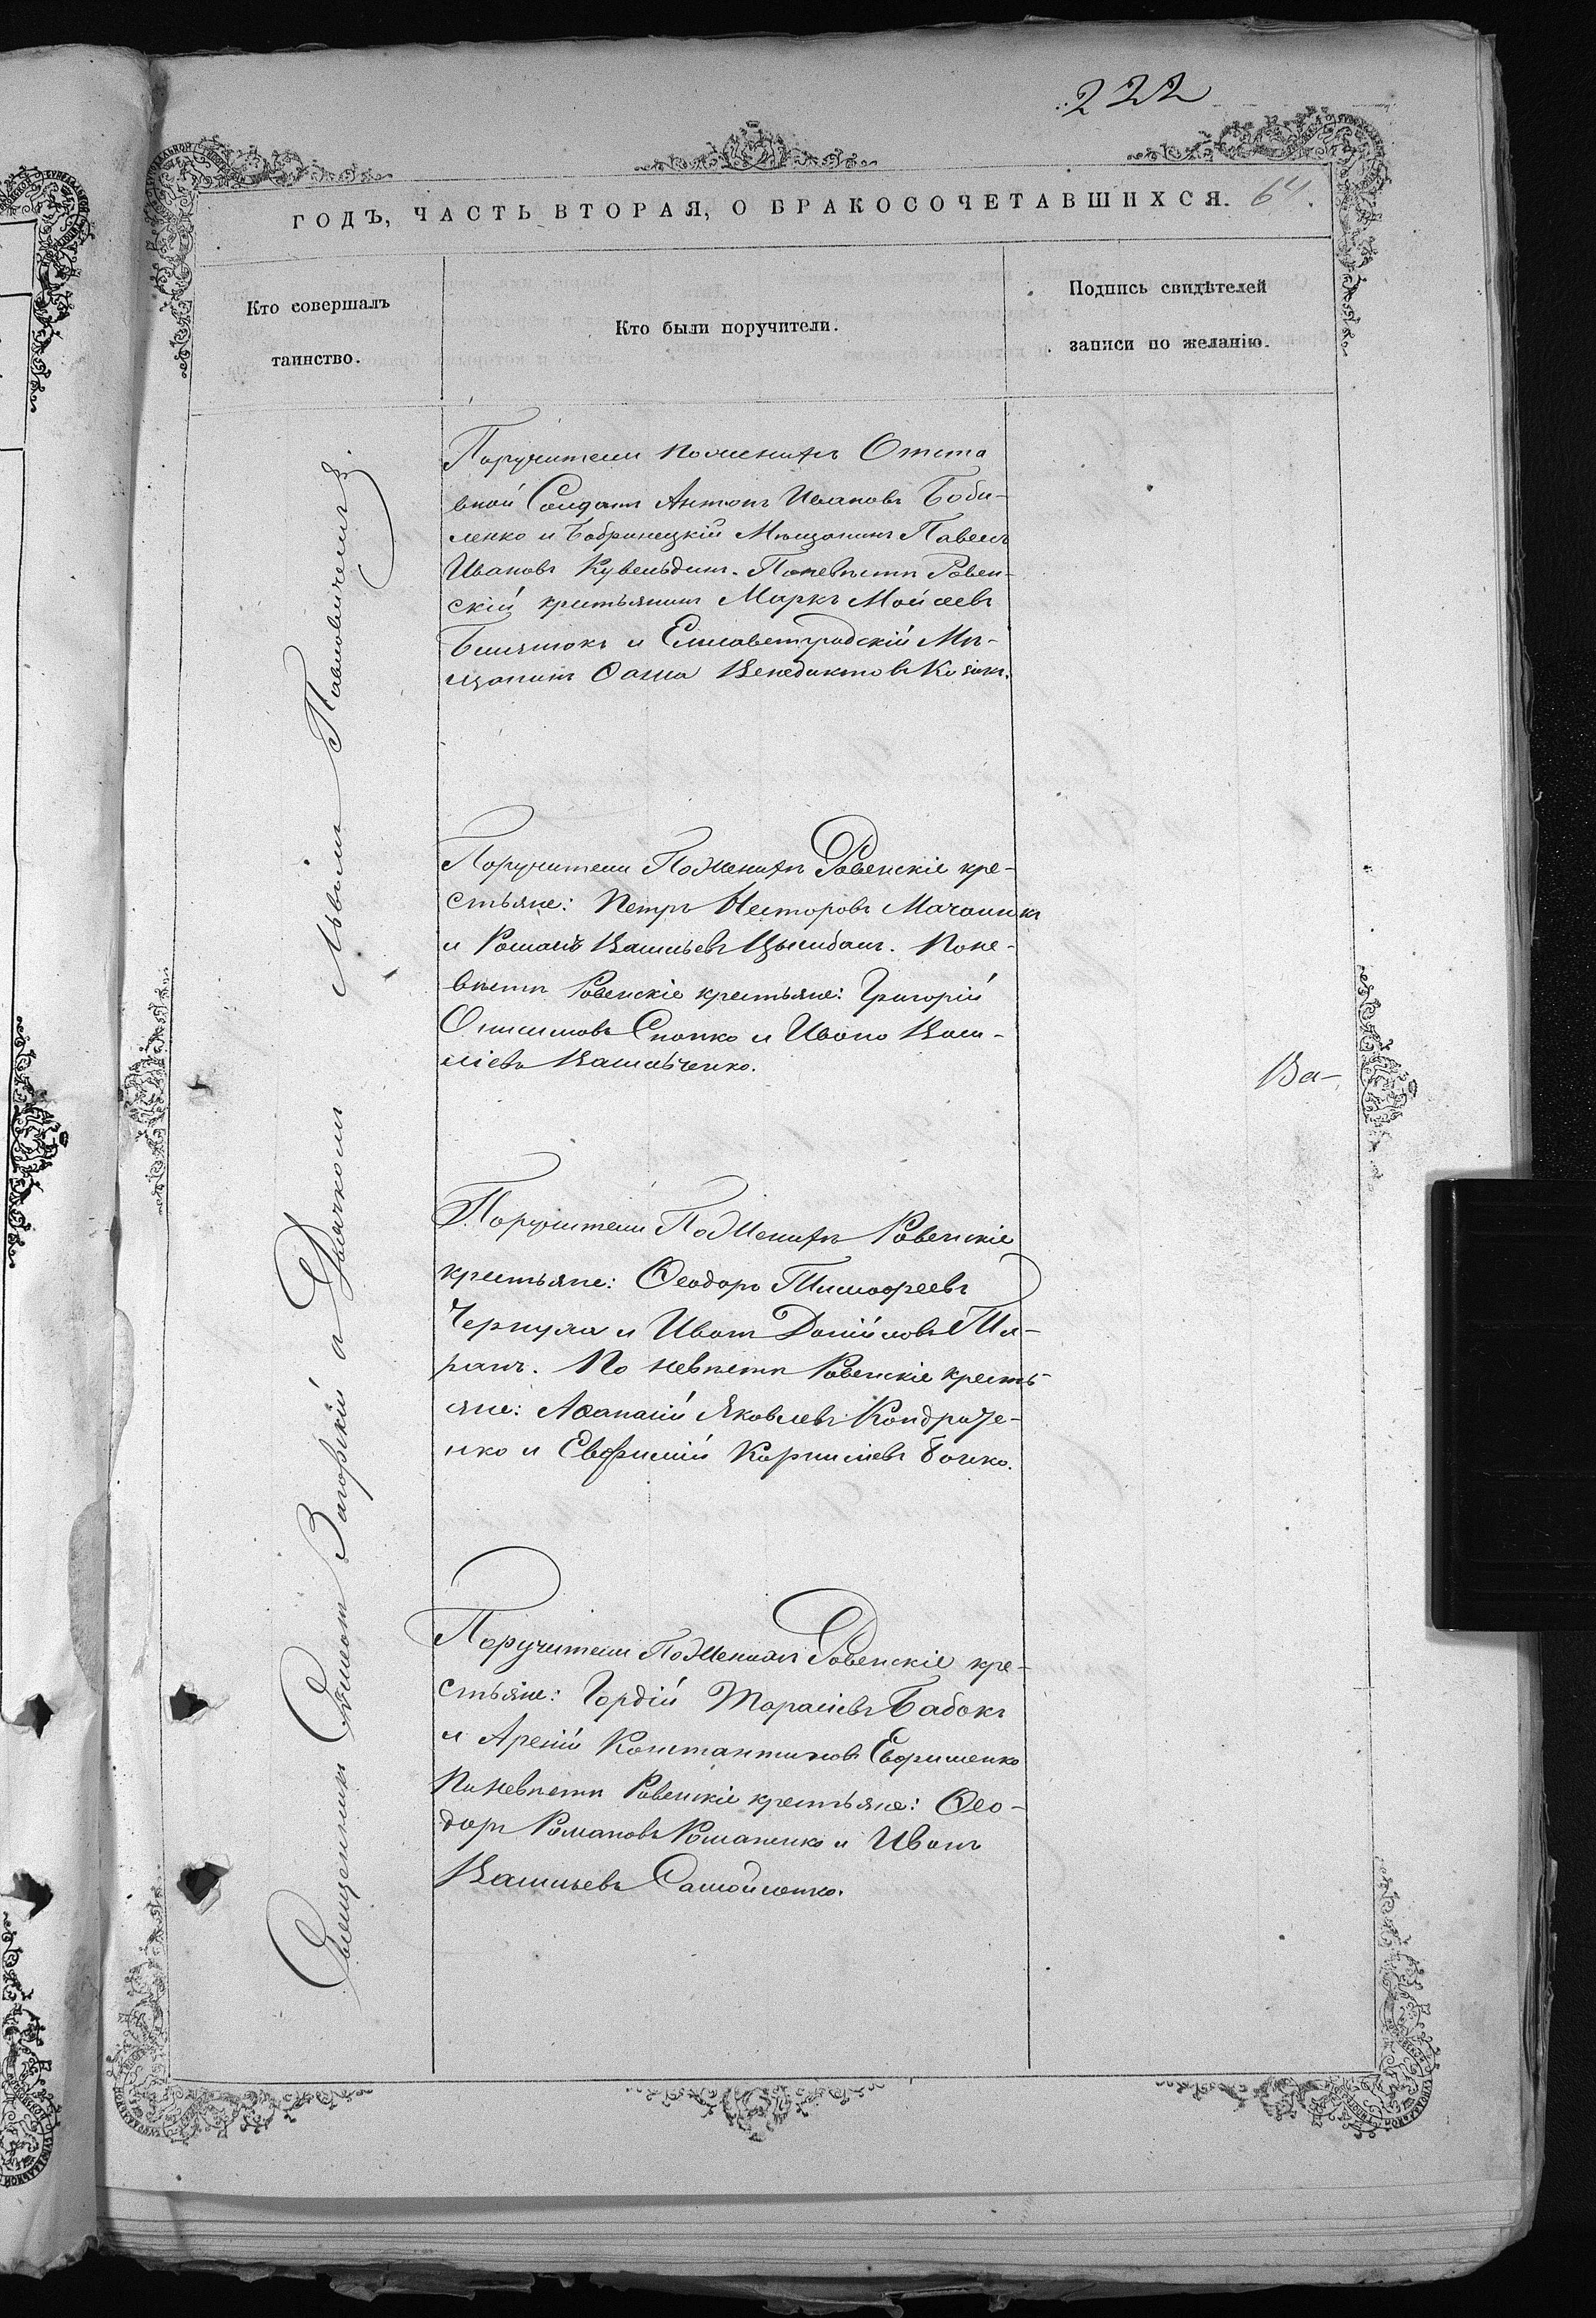 222
ГОДЪ, ЧАСТЬ ВТОРАЯ, О БРАКОСОЧЕТАВШИХСЯ. 64.
Кто совершалъ
таинство.
Кто были поручители.
Подпись свидѣтелей
записи по желанію.
Священникъ Симеонъ Загорскій съ Дьячкомъ Павловичемъ
Поручители по женихѣ Отста
вной Солдатъ Антонъ Ивановъ Боби-
ленко и Бобринецкій Мѣщанинъ Павелъ
Ивановъ Кувельдинъ. По невѣстѣ Ровен-
скій крестьянинъ Маркъ Мойсеевъ
и Елисаветградскій Мѣ-
щанинъ Ѳома Венедиктовъ Козакъ.
Поручители По Женихѣ Ровенскіе кре-
стьяне: Петръ Несторовъ
и Романъ Васильевъ Цымбалъ. По не-
вѣстѣ Ровенскіе крестьяне: Григорій
Онисимовъ Снопко и Иванъ Васи-
ліевъ Васильченко.
Ва-
Поручители По Женихѣ Ровенскіе
крестьяне: Ѳеодоръ Тимофеевъ
и Иванъ Даніиловъ Ти-
ранъ. По невѣстѣ Ровенскіе кресть-
яне: Аѳанасій Яковлевъ Кондраче-
нко и Евфимій Корниліевъ Бойко.
Поручители По Женихѣ Ровенскіе кре-
стьяне: Гордій Тарасіевъ Бабакъ
и Арсній Константиновъ Ефименко
По невѣстѣ Ровенскіе крестьяне: Ѳео-
доръ Романовъ Романенко и Иванъ
Васильевъ Самойленко.